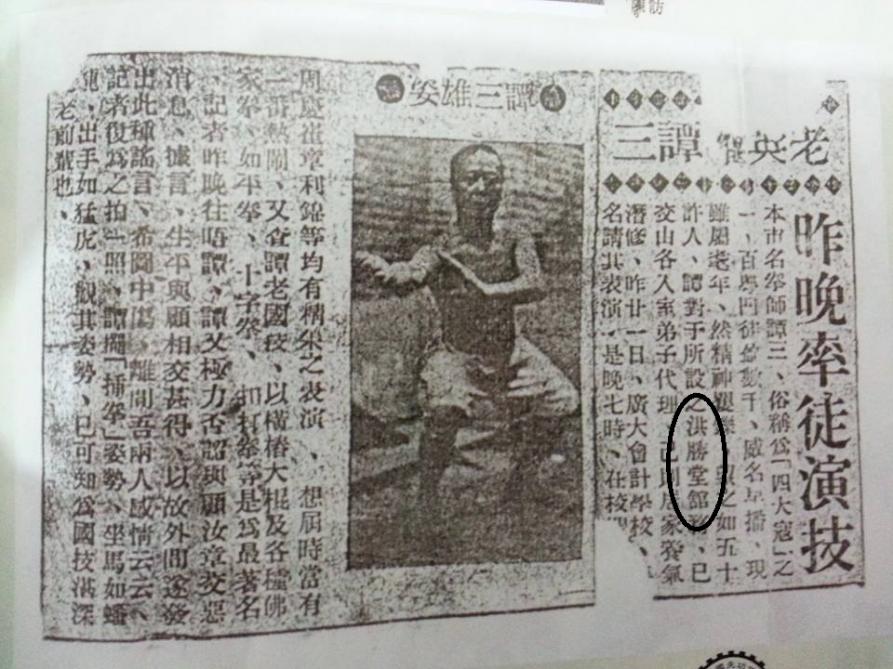 老英雄譚三
昨晚率徒演技
本市名拳師譚三、俗稱爲「四大寇」之
一、百粤門徒數千、威名早播、現
雖屬老年、然精神、之如五十
許人、譚對于所設之洪勝堂館、已
交山各入室弟子代理、己則居家養氣
潛修、昨廿一日、廣大會計學校、
名請其表演、是晚七時、在校
譚三雄姿
周慶崔章利錦等均有精采之表演、想屆時當有
一番熱鬧、又查譚老國技、以橫樁大棍及各種佛
家拳、如平拳、十字拳、扣打拳等是爲最著名
、記者昨晚往晤譚、譚又極力否認與顧汝章交惡
消息、據言、生平與顧相交甚得、以故外間遂發
出此種謠言、希圖中傷、離間吾兩人感情云云、
記者復爲之拍一照、譚擺「插拳」姿勢、坐馬如蟠
龍、出手如猛虎、觀其姿勢、已可知爲國技湛深
老前輩也、